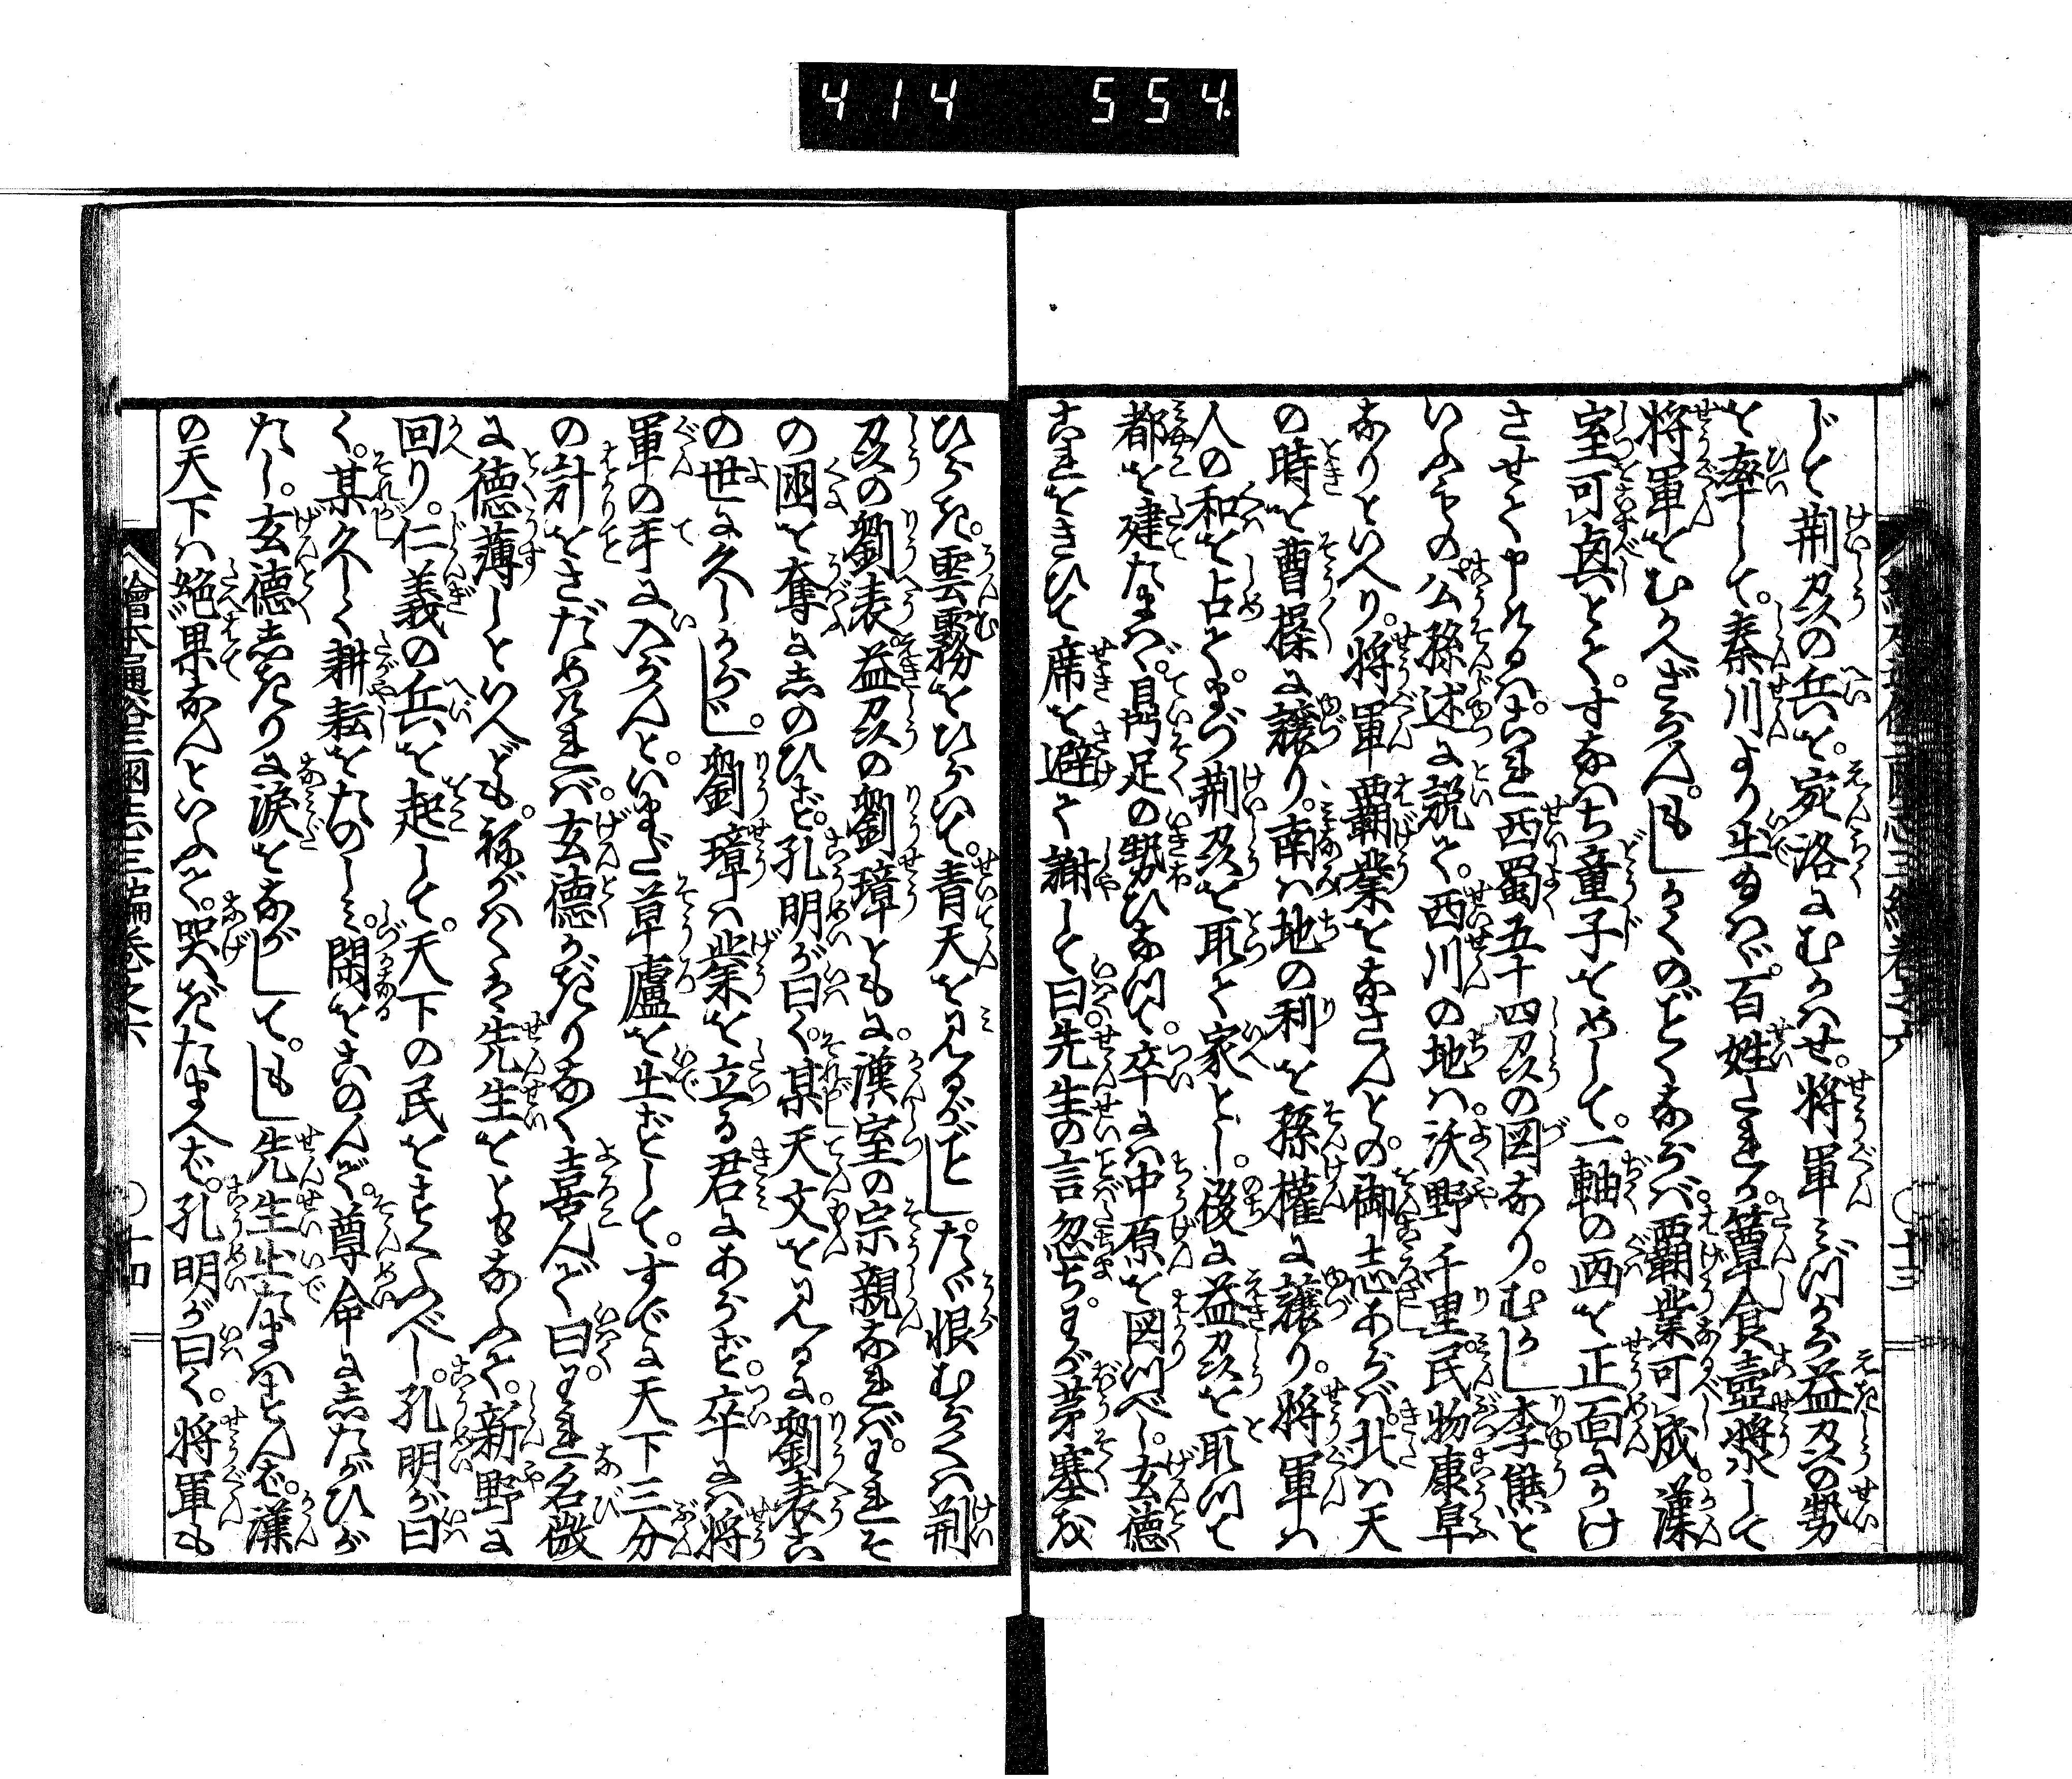 414 554.
じて荊州の兵を。宛洛にむかへせ。将軍みづから益州の勢
を率して。秦川より出るならバ。百姓これを。簞食壺漿して
将軍をむかへざらん。もしかくのごとくならバ覇業可成。漢
室可興とて。すなハち童子をめして。一軸の画を正面にかけ
させて申けるハ。これ西蜀五十四州の図なり。むかし李熊と
いふもの。公孫述に説て。西川の地ハ。沃野千里。民物康阜
なりといへり。将軍覇業をなさんとの。御志あらバ。北ハ天
の時を曹操に譲り。南ハ地の利を孫權に譲り。将軍ハ
人の和を占て。まづ荊州を取て家とし。後に益州を取つて
都を建たまへバ。鼎足の勢ひなつて。卒にハ中原を図つべし。玄徳
これをきひて席を避て謝して曰。先生の言忽ち。わが茅塞を
ひらき。雲霧をひらいて。青天を見るがごとし。たゞ恨むらくハ荊
州の劉表。益州の劉璋ともに。漢室の宗親なれバ。われそ
の国を奪にしのひず。孔明が曰く。某天文を見るに。劉表こ
の世に久しからじ。劉璋ハ業を立る君にあらず。卒にハ将
軍の手に入なんと。いまだ草廬を出ずして。すでに天下三分
の計をさだめけれバ。玄徳かぎりなく喜んで曰。われ名微
に徳薄しといへども。ねがハくは先生をともなふて。新野に
回り。仁義の兵を起して。天下の民をすくふべし。孔明が曰
く。某久しく耕耘をたのしミ。閑をこのんで。尊命にしたがひが
たし。玄徳しきりに涙をながして。もし先生出たまハずんば。漢
の天下ハ絶果なんといふて。哭きたまへば。孔明が曰く。将軍も
繪本通俗三國志三編卷之六
〇十三
〇十四